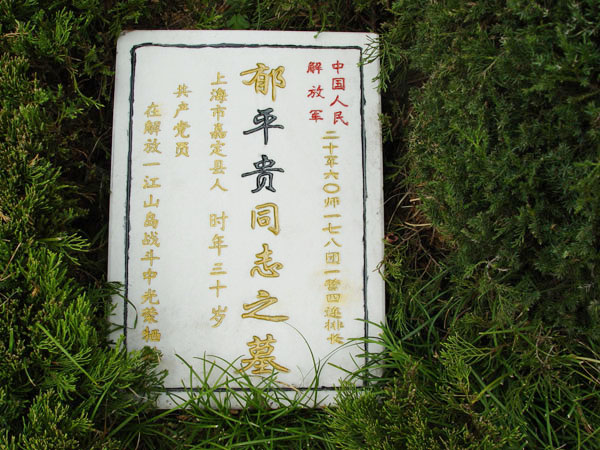 中国人民
解放军
二十军六〇师一七八团一营四连排长
郁平贵同志之墓
上海市嘉定县人 时年三十岁
共产党员
在解放一江山岛战斗中光荣牺